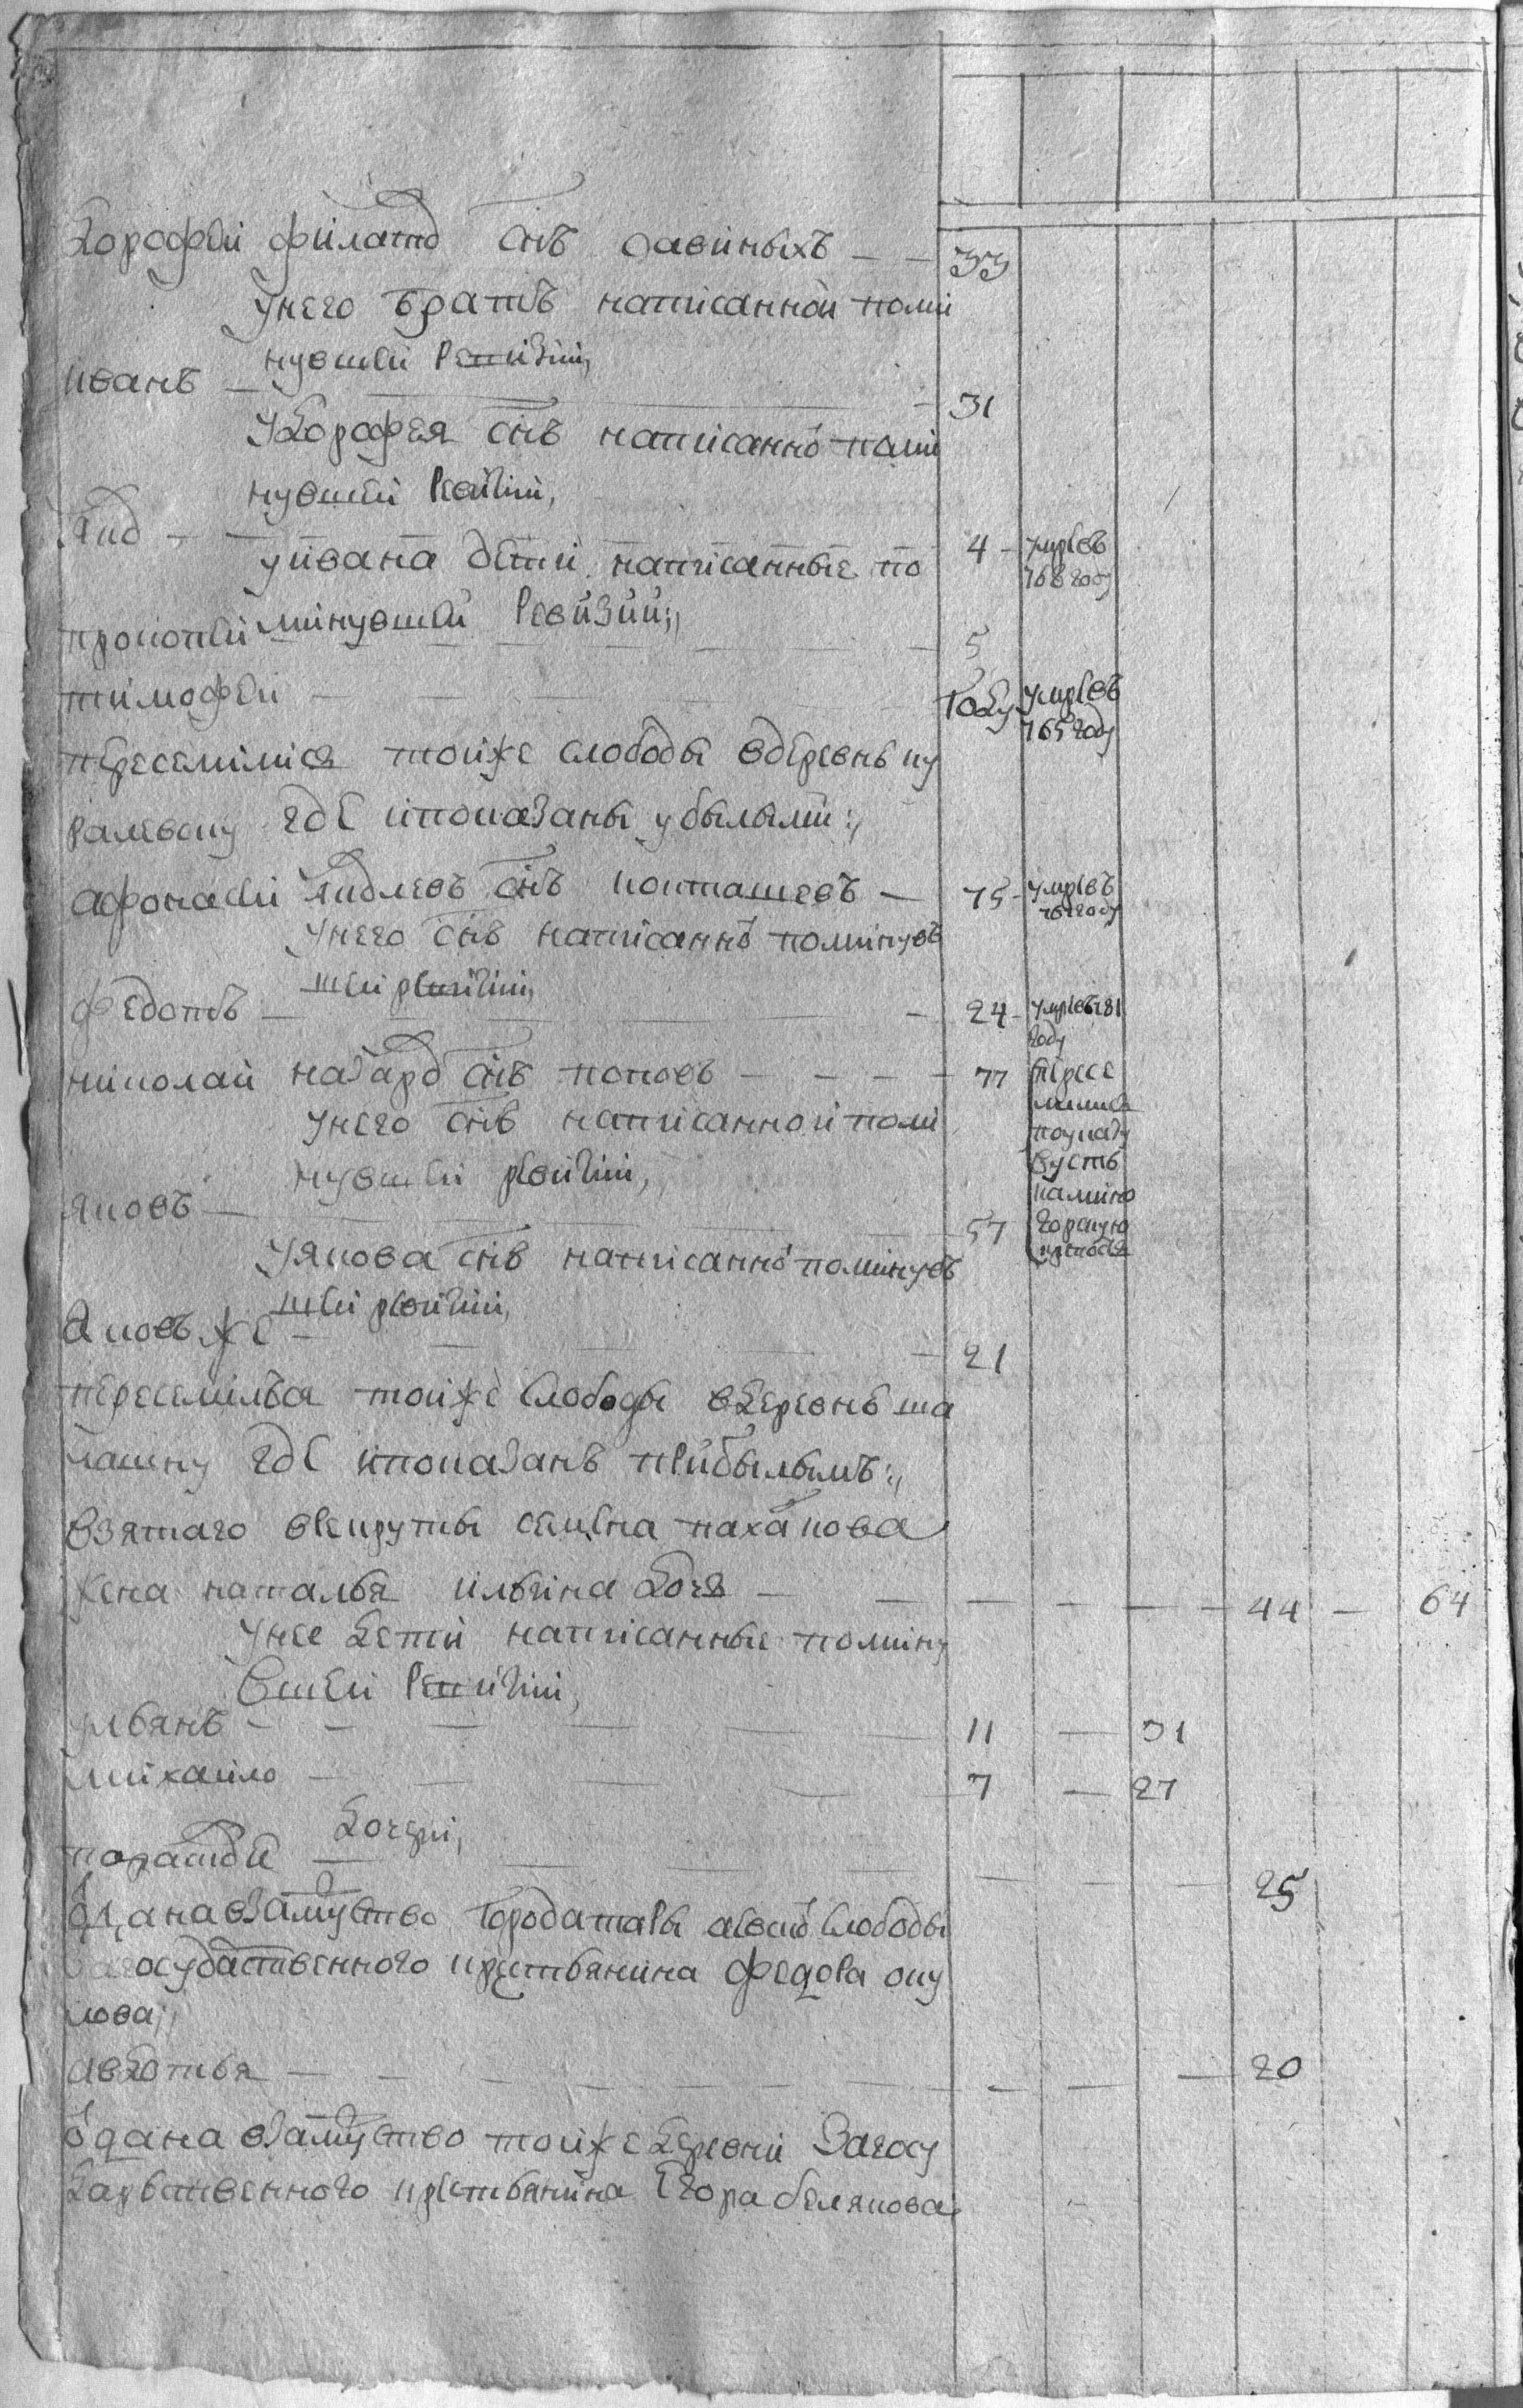 Дорофей филатов снъ савиныхъ — — 33
унего братъ написанной поми
нувшей ревизии,
иванъ — 31
удорофея снъ написанно поми
нувшей ревизии,
яков — 4 — умре въ 768 году
уивана дети написанные по
минувшей ревизии;,
прокопей — 5
тимофей — году умре въ 765 году
переселилися тоиже слободы вдеревнь ку
ралевску где ипоказаны убылыми:,
афонасей яковлевъ снъ — 75 — умре въ году
унего снъ написанно поминув
шей ревизии,
федотъ — 24 — умре въ 781 году
николай назаров снъ поповъ — — — — 77 пересе
лился
поуказу
вусть
камино
горскую
крепость
унего снъ написанной поми
нувшей ревизии,
яковъ — 57
уякова снъ написанно поминувъ
шей ревизии,
яковъ же — 21
переселился тоиже слободы вдеревнь ша
лашну где ипоказанъ прибылымъ:,
взятаго врекруты семена пахакова
жена наталья ильина дочь — — — — — 44 — 64
унее дети написанные помину
вшей ревизии,
ульянъ — — — 11 — 31
михаило — — 7 — 27
дочери,
— — — 25
оддана взамуство города тары слободы
загосударственного крестьянина федора оку
лова;,
авдотья — — — 20
отдана взамуство тоиже деревни загосу
дарственного крестьянина егора белякова,